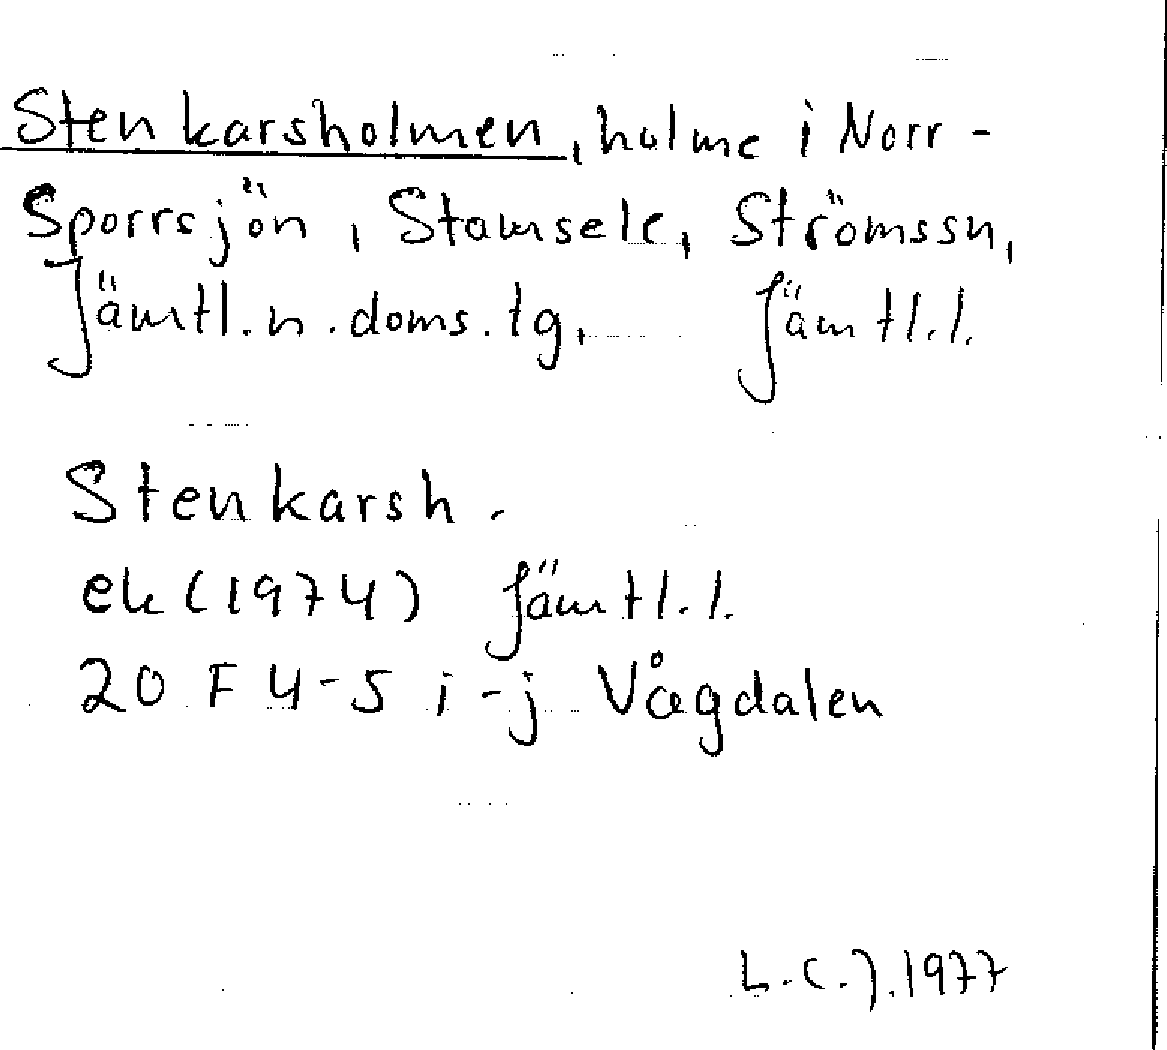 Stenkarsholmen, holme i Norr-
Sporrsjön, Stamsele, Strömssn,
Jämtl.n.doms.tg, Jämtl.l.
Stenkarsh.
ek (1974) Jämtl.l.
20 F 4-5 i-j Vågdalen
L.C.J. 1977